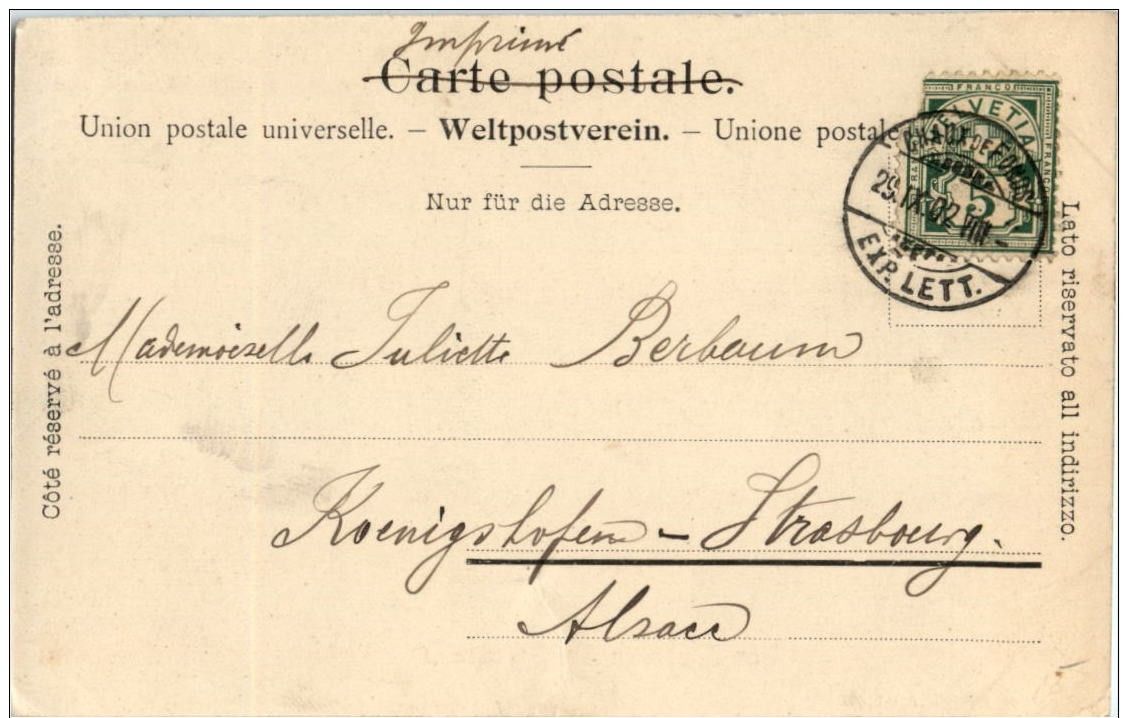 Imprimé
Carte postale.
Union postale universelle. – Weltpostverein. – Unione postale
Nur für die Adresse.
Côté réservé à l'adresse.
Lato riservato all indirizzo.
FRANCO
HELVETIA
FRANCO
5
CHAUX DE FONDS
29.IX.02.VIII–
EXP. LETT.
Mademoiselle Juliette Berbaum
Koenigshofen – Strasbourg.
Alsace